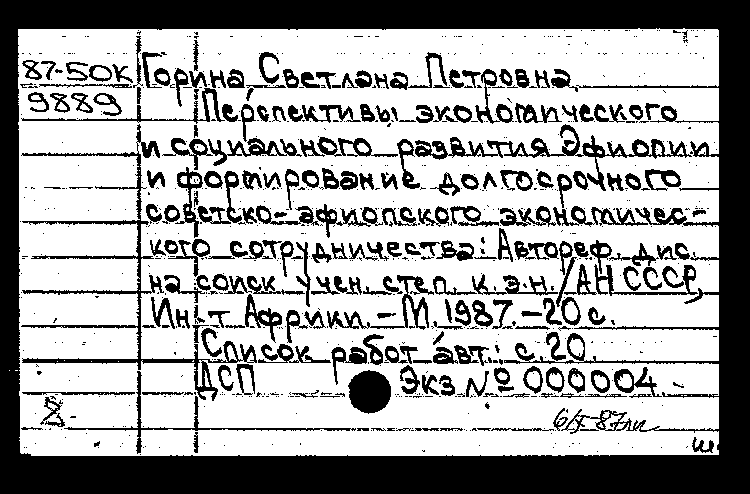 87-50К Горина, Светлана Петровна.
9889 Перспективы экономического
и социального развития Эфиопии
и формирование долгосрочного
советско-эфиопского экономичес-
кого сотрудничества: Автореф. дис.
на соиск. учен. степ. к.э.н. / АН СССР,
Ин-т Африки. - М. 1987. - 20 с.
Список работ авт.: с. 20.
ДСП Экз № 000004.